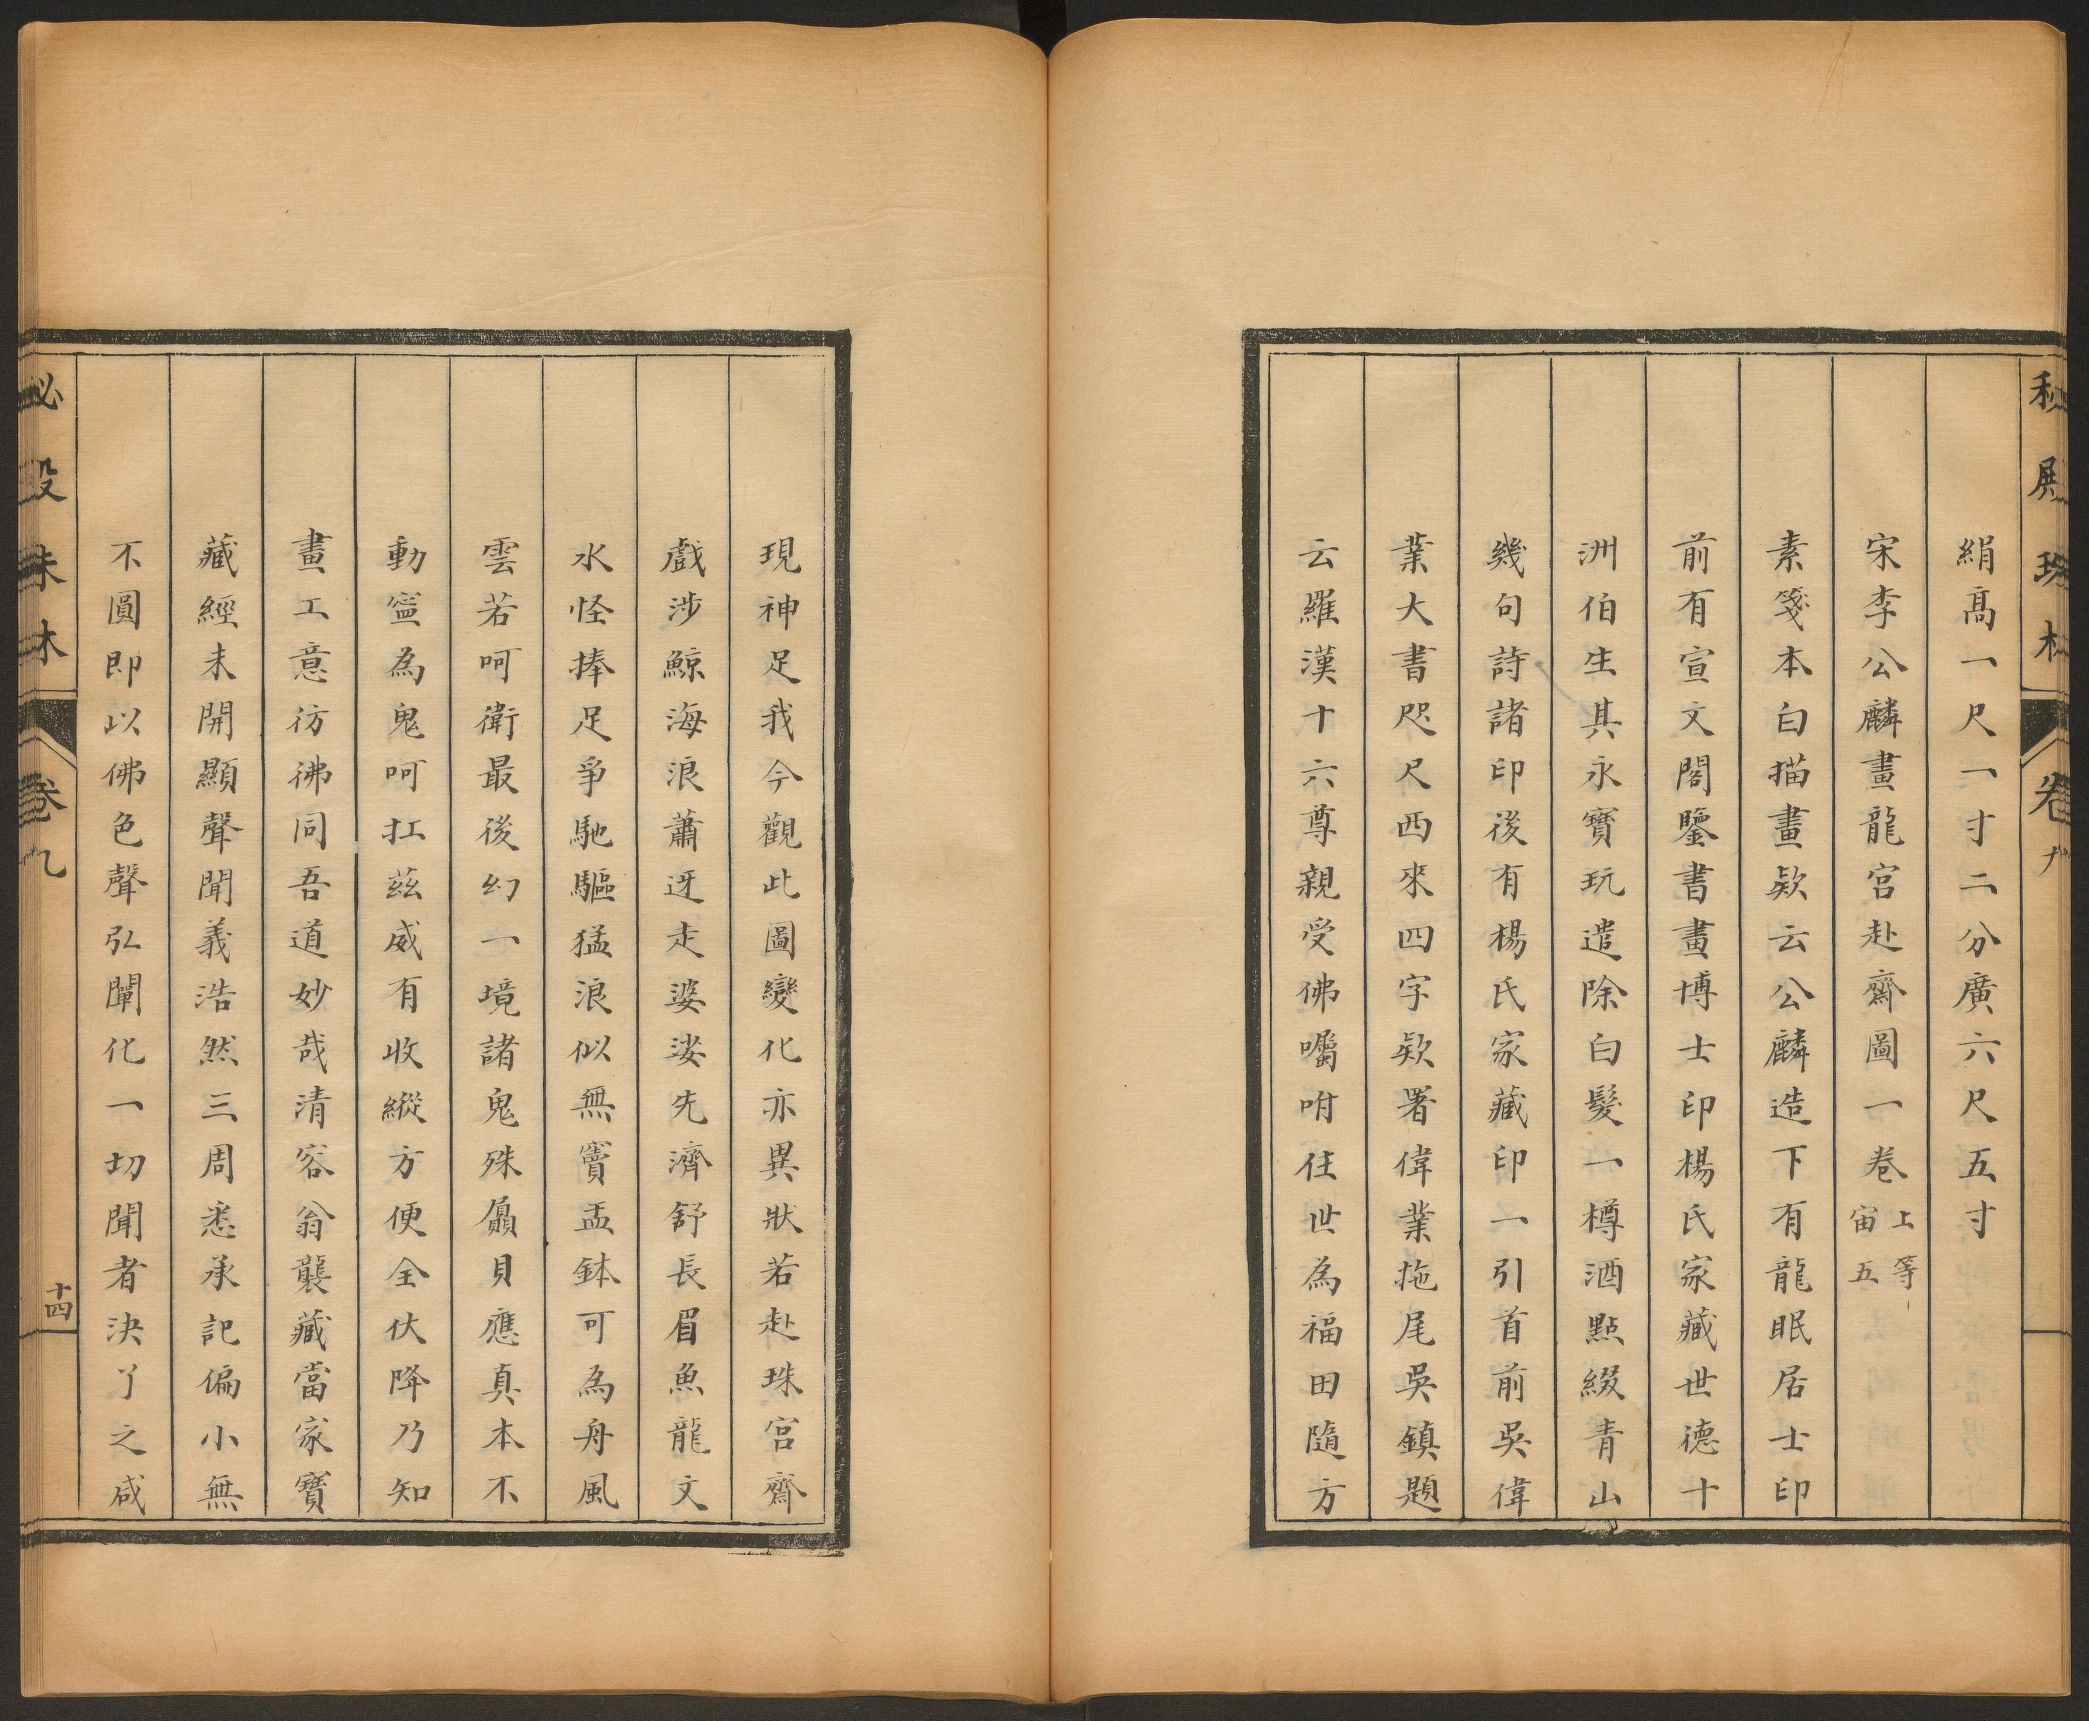 秘殿珠林 卷九
絹高一尺一寸二分廣六尺五寸
宋李公麟畫龍宮赴齋圖一卷 上等 宙五
素箋本白描畫欵云公麟造下有龍眠居士印
前有宣文閣鑒書畫博士印楊氏家藏世德十
洲伯生其永寶玩遣除白髮一樽酒點綴青山
幾句詩諸印後有楊氏家藏印一引首前吳偉
業大書咫尺西來四字欵署偉業拖尾吳鎮題
云羅漢十六尊親受佛囑咐住世為福田隨方
現神足我今觀此圖變化亦異狀若赴珠宮齋
戲涉鯨海浪蕭迓走婆娑先濟舒長眉魚龍文
水怪捧足爭馳驅猛浪似無竇盂鉢可為舟風
雲若呵衛最後幻一境諸鬼殊贔屓應真本不
動寍為鬼呵扛茲威有收縱方便全伏降乃知
畫工意彷彿同吾道妙哉清容翁襲藏當家寶
藏經未開顯聲聞義浩然三周悉承記偏小無
不圓即以佛色聲弘闡化一切聞者決了之咸
秘殿珠林 卷九 十四